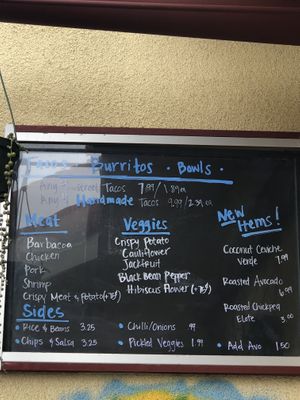 Tacos · Burritos · Bowls ·
Any 4 Street Tacos 7.99/1.89 ea
Any 4 Handmade Tacos 9.99/2.59 ea
Meat
Barbacoa
Chicken
Pork
Shrimp
Crispy Meat & Potato (+75¢)
Veggies
Crispy Potato
Cauliflower
Jackfruit
Black Bean Pepper
Hibiscus Flower (+75¢)
New Items!
Coconut Ceviche
Verde 7.99
Roasted Avocado
6.99
Roasted Chickpea
Elote 3.00
Sides
• Rice & Beans 3.25
• Chips & Salsa 3.25
• Chilli/Onions .99
• Pickled Veggies 1.99
• Add Avo 1.50